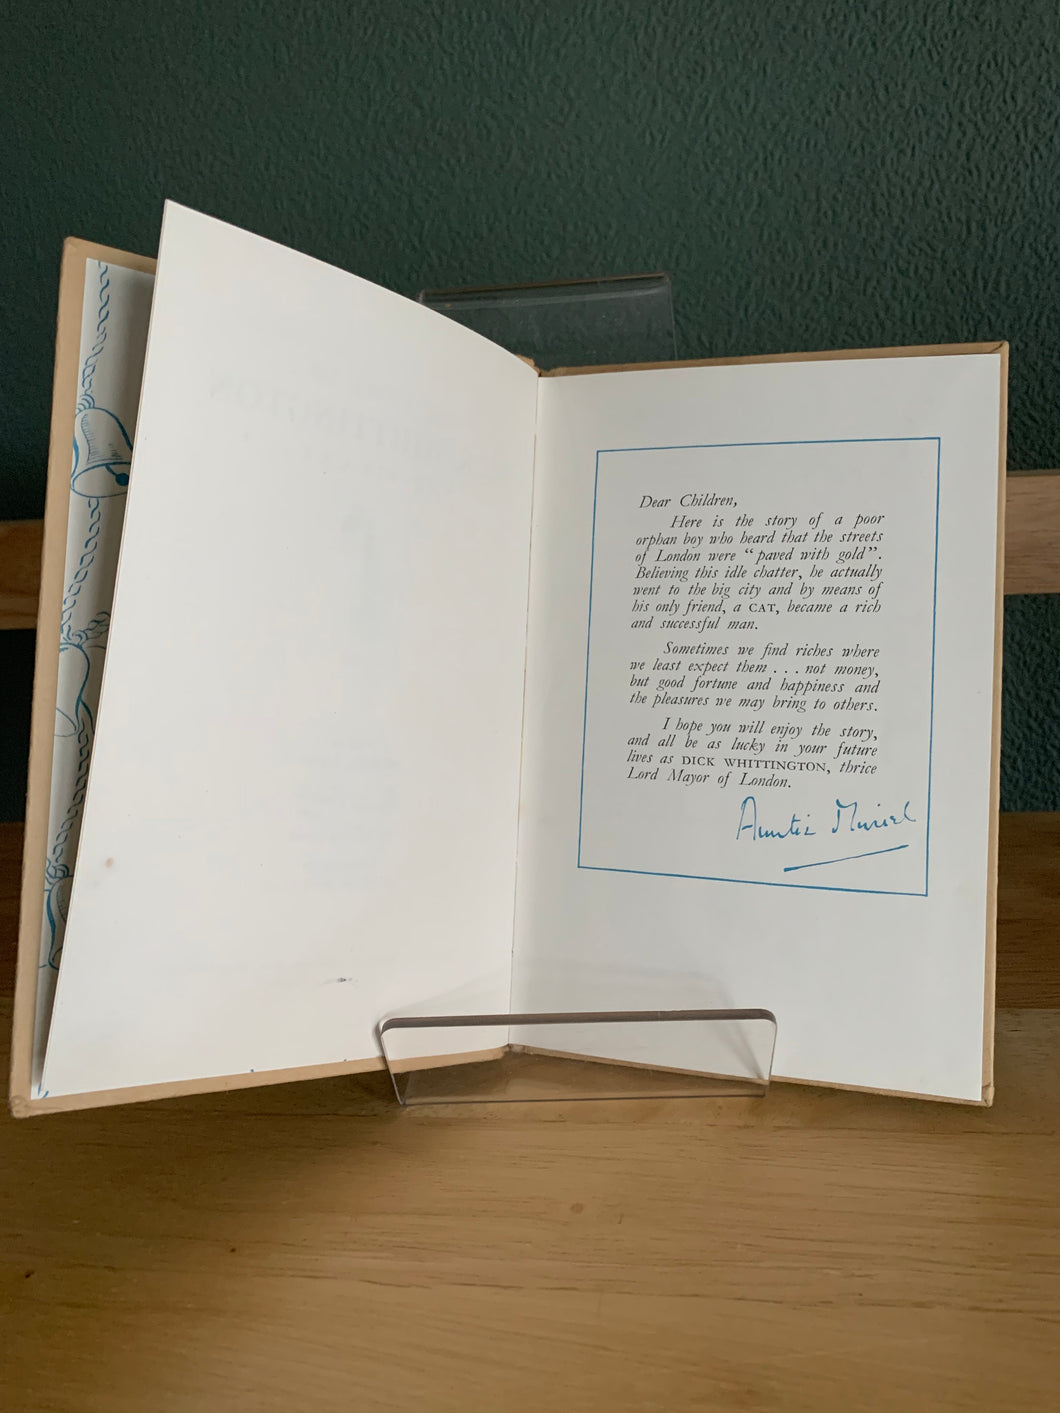 Dear Children,
Here is the story of a poor
orphan boy who heard that the streets
of London were “paved with gold”.
Believing this idle chatter, he actually
went to the big city and by means of
his only friend, a CAT, became a rich
and successful man.
Sometimes we find riches where
we least expect them . . . not money,
but good fortune and happiness and
the pleasures we may bring to others.
I hope you will enjoy the story,
and all be as lucky in your future
lives as DICK WHITTINGTON, thrice
Lord Mayor of London.
Auntie Muriel